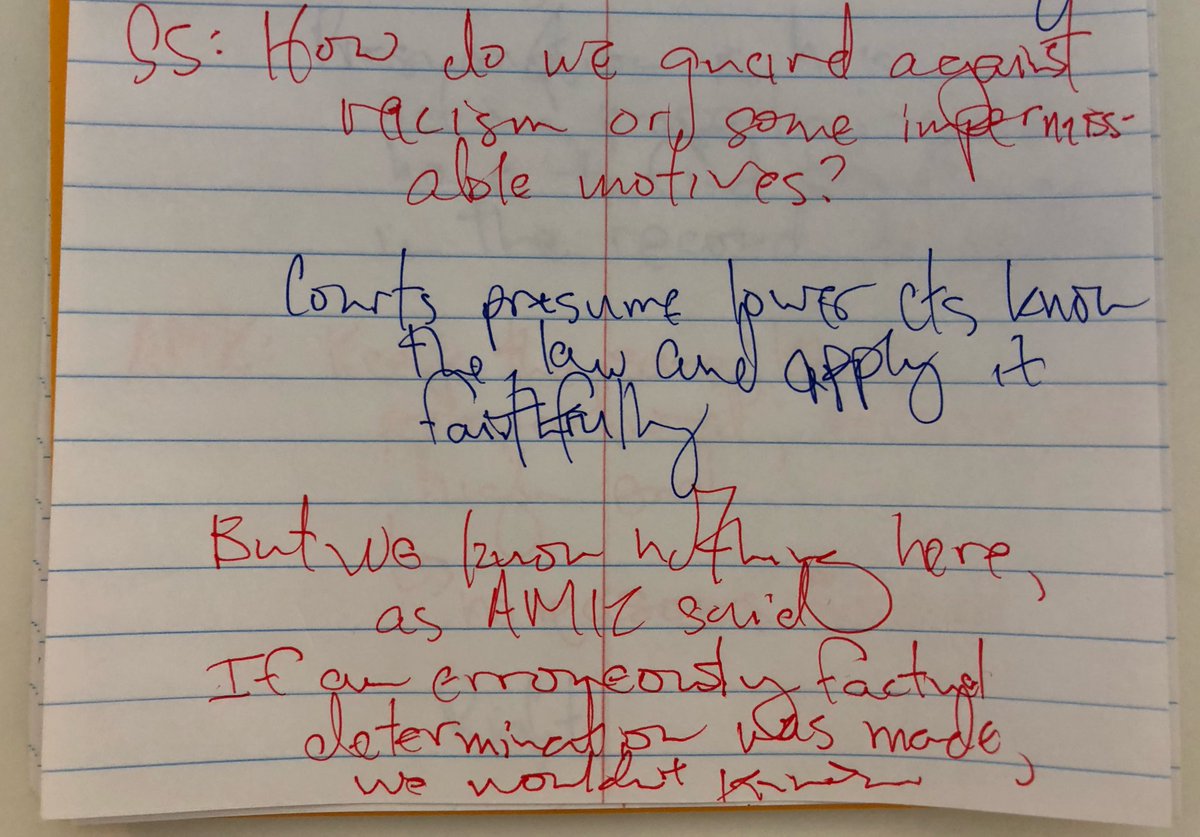 SS: How do we guard against
racism or some impermiss-
able motives?
Courts presume lower cts know
the law and apply it
faithfully
But we know nothing here,
as AMK said
If an erroneously factual
determination was made,
we wouldn't know